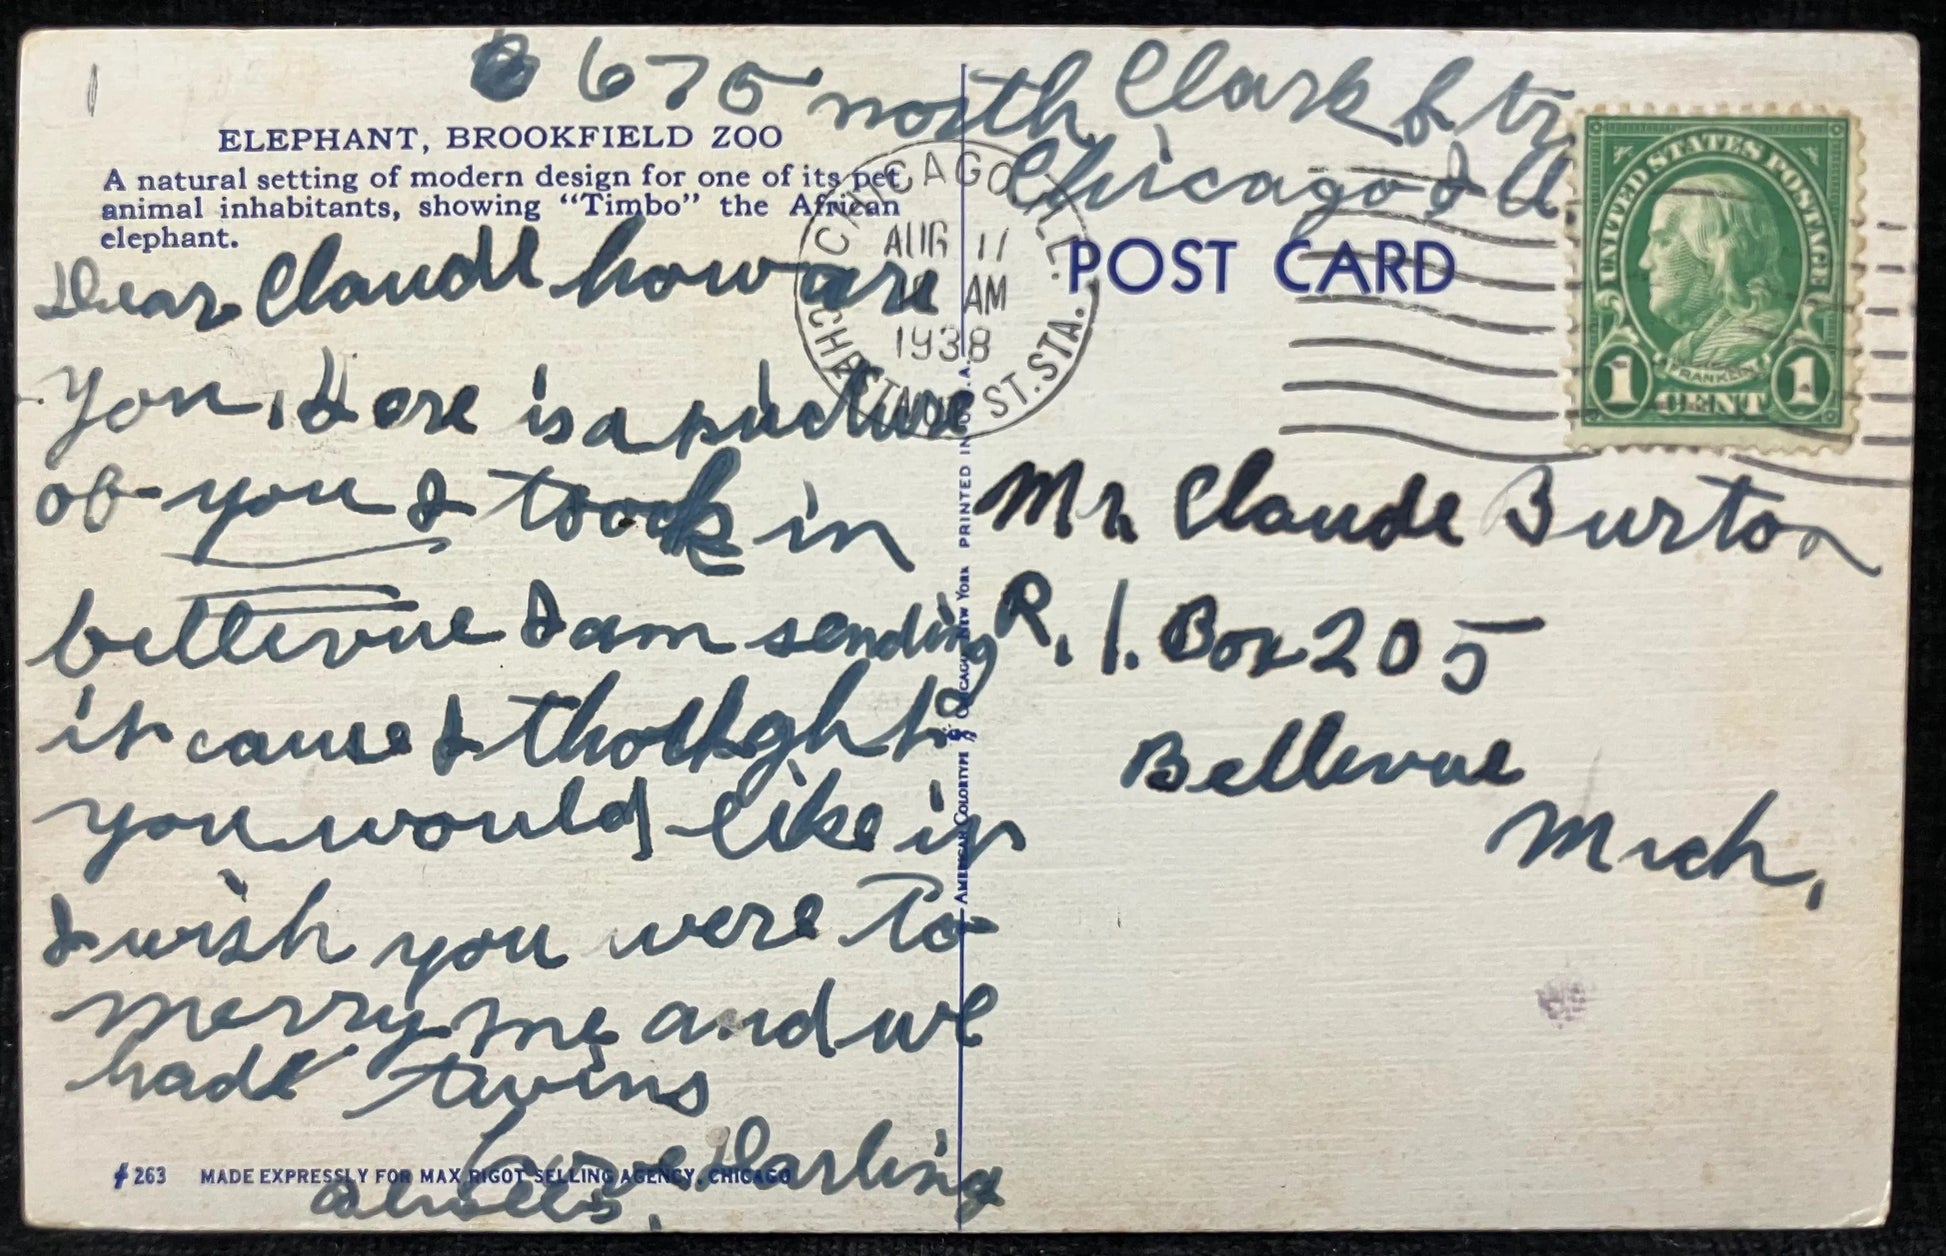 675 north Clark Str
Chicago Ill
ELEPHANT, BROOKFIELD ZOO
A natural setting of modern design for one of its pet
animal inhabitants, showing “Timbo” the African
elephant.
Dear Claude how are
you, here is a picture
of you I took in
bellevue I am sending
it cause I thought
you would like it
I wish you were to
merry me and we
had twins
Love Darling
always.
#263 MADE EXPRESSLY FOR MAX RIGOT SELLING AGENCY, CHICAGO
AMERICAN COLORTYPE CHICAGO & NEW YORK PRINTED IN U.S.A.
CHICAGO, ILL.
AUG 11
AM
1938
CHESTNUT ST. STA.
POST CARD
UNITED STATES POSTAGE
FRANKLIN
1 CENT 1
Mr. Claude Burton
R. 1. Box 205
Bellevue
Mich,